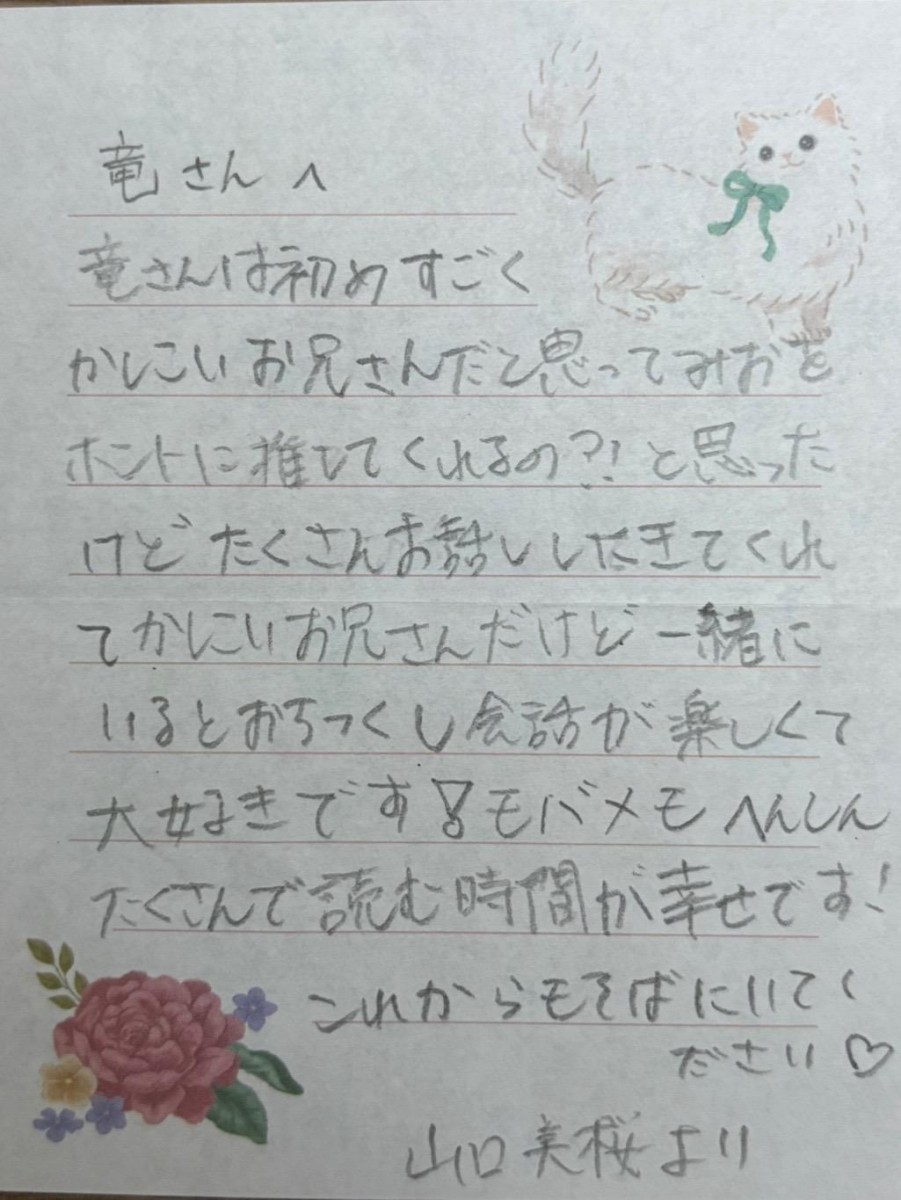 竜さんへ
竜さんは初めすごく
かしこいお兄さんだと思ってみおを
ホントに推してくれるの?!と思った
けどたくさんお話ししたきてくれ
てかしこいお兄さんだけど一緒に
いるとおちつくし会話が楽しくて
大好きです!モバメモへんしん
たくさんで読む時間が幸せです!
これからもそばにいてく
ださい♡
山口美桜より